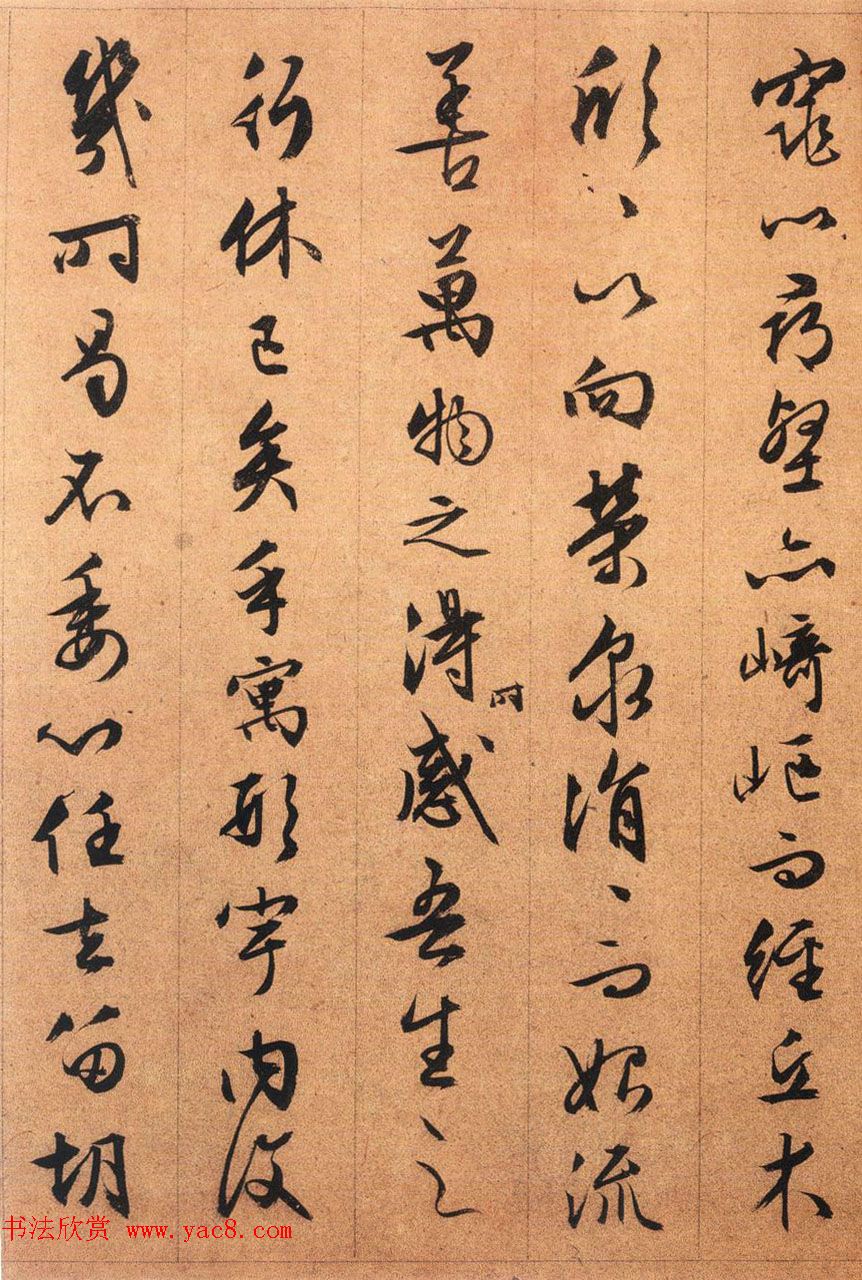 窕以尋壑亦崎嶇而經丘木
欣〻以向榮泉涓〻而始流
善萬物之得時感吾生之
行休已矣乎寓形宇內復
幾時曷不委心任去留胡
书法欣赏 www.yac8.com